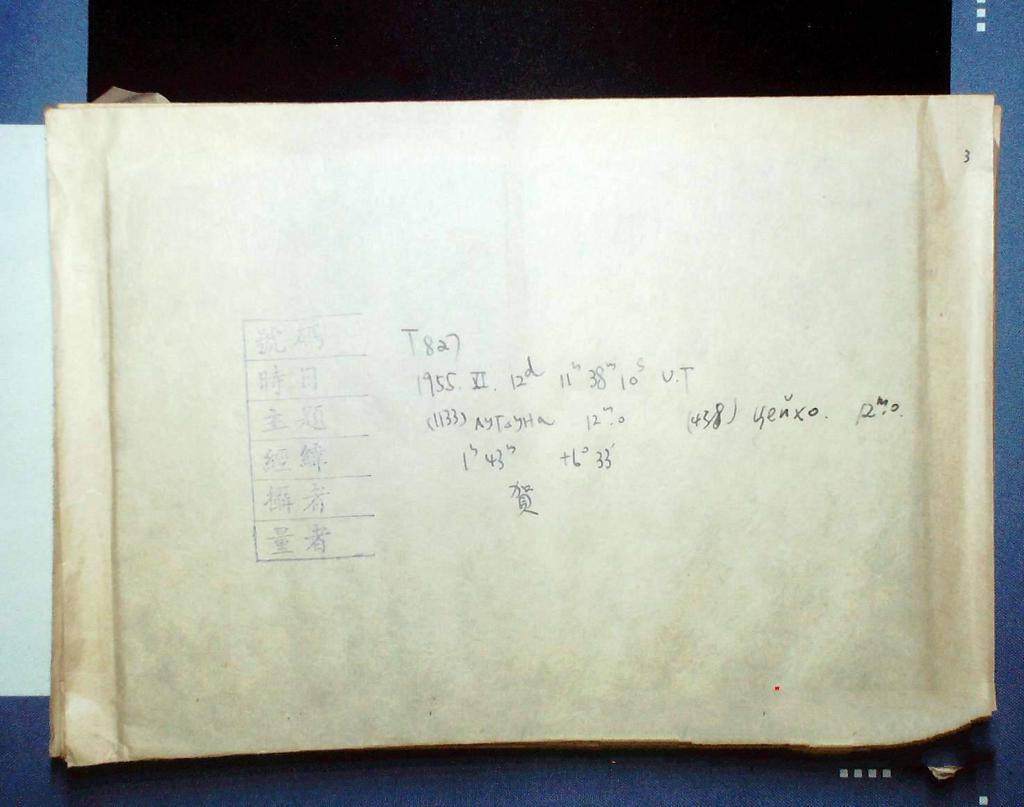 3
號碼 T827
時日 1955. XI. 12d 11h 38m 10s U.T
主題 (1133) лутауна 12m.0 (438) цейхо. 12m.0.
經緯 1h 43m +6° 33'
攝者 賀
量者